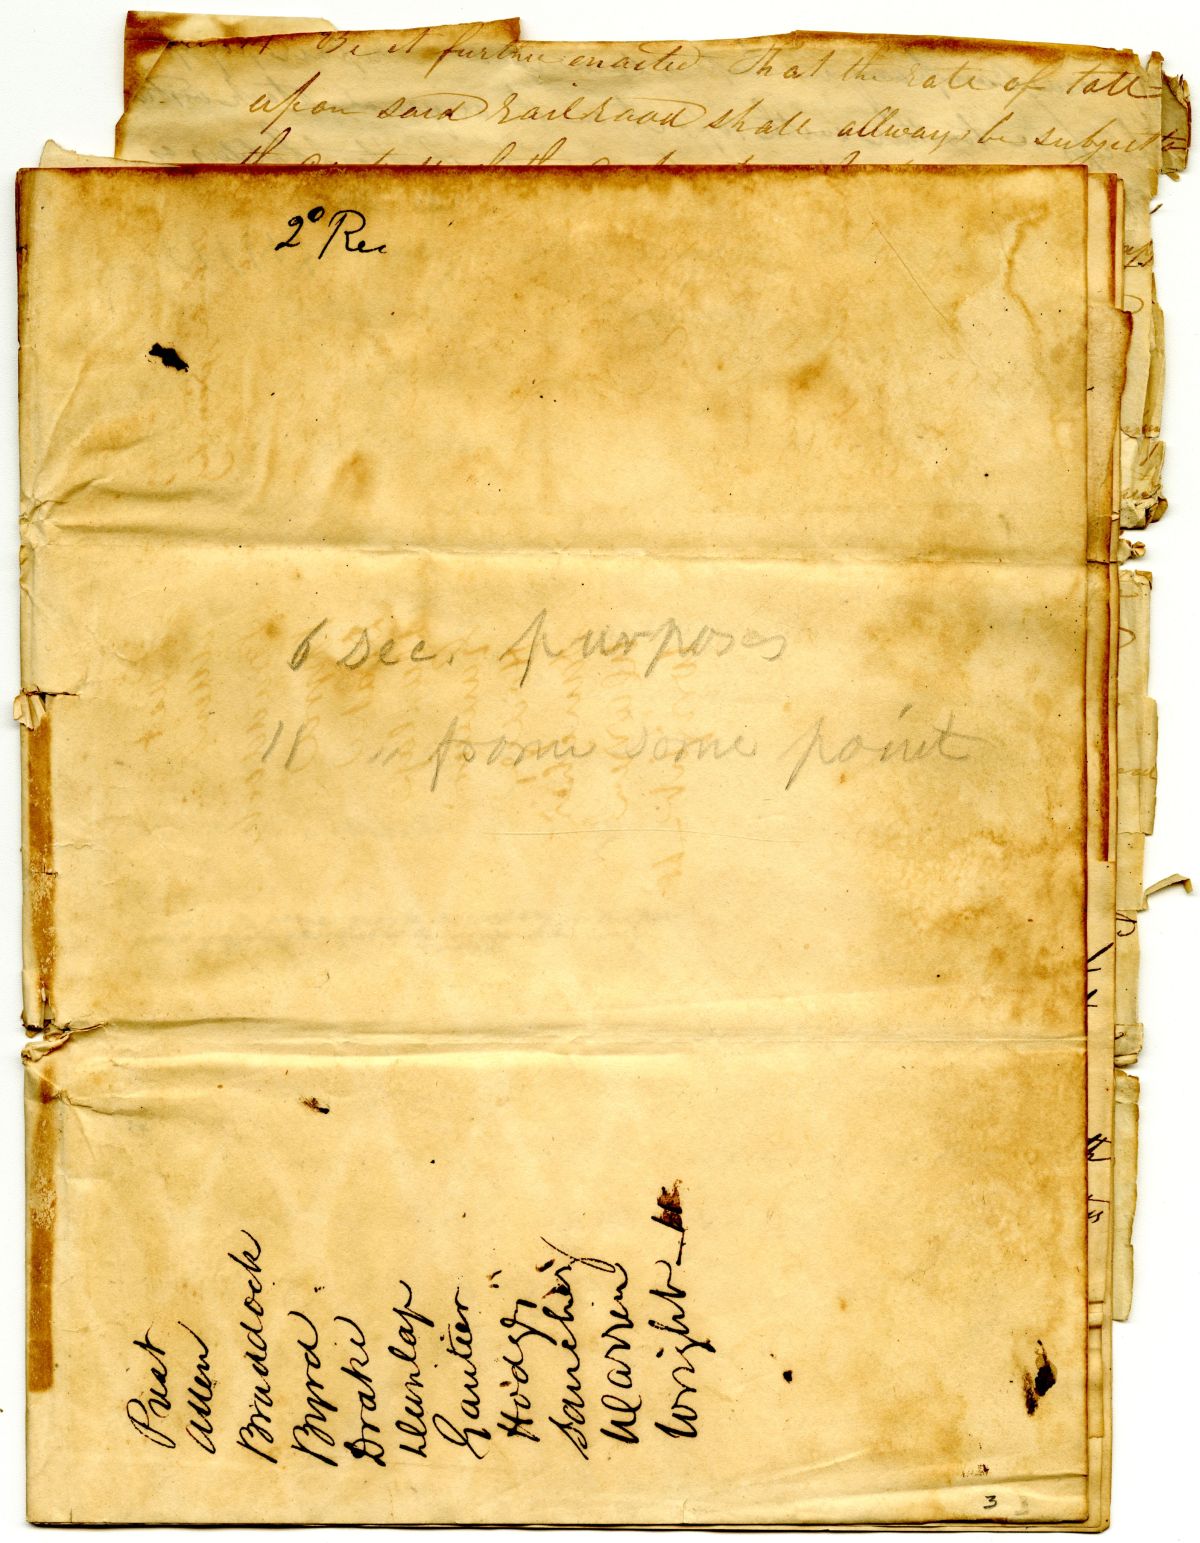 Be it further enacted That the rate of toll
upon said railroad shall allways be subject to
2º Rec
6 Dec. purposes
18 " from some point
Prest
Allen
Braddock
Byrd
Drake
Dunlap
Gautier
Hodges
Sanchez
Warren
Wright
3